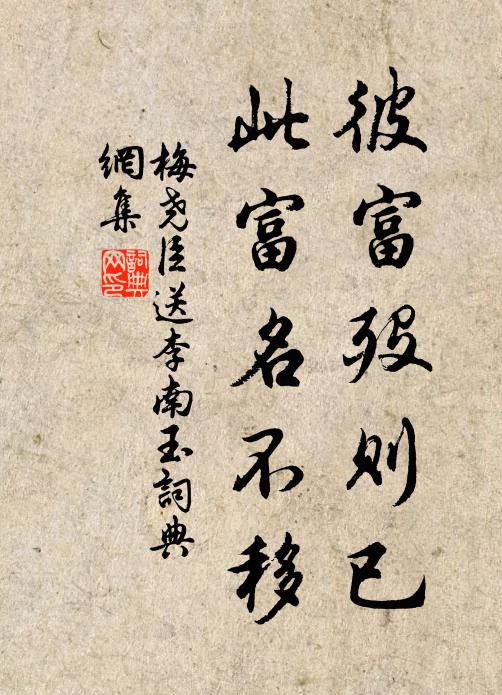 彼富歿則已
此富名不移
梅尧臣送李南玉詞典
網集
詞典
网印